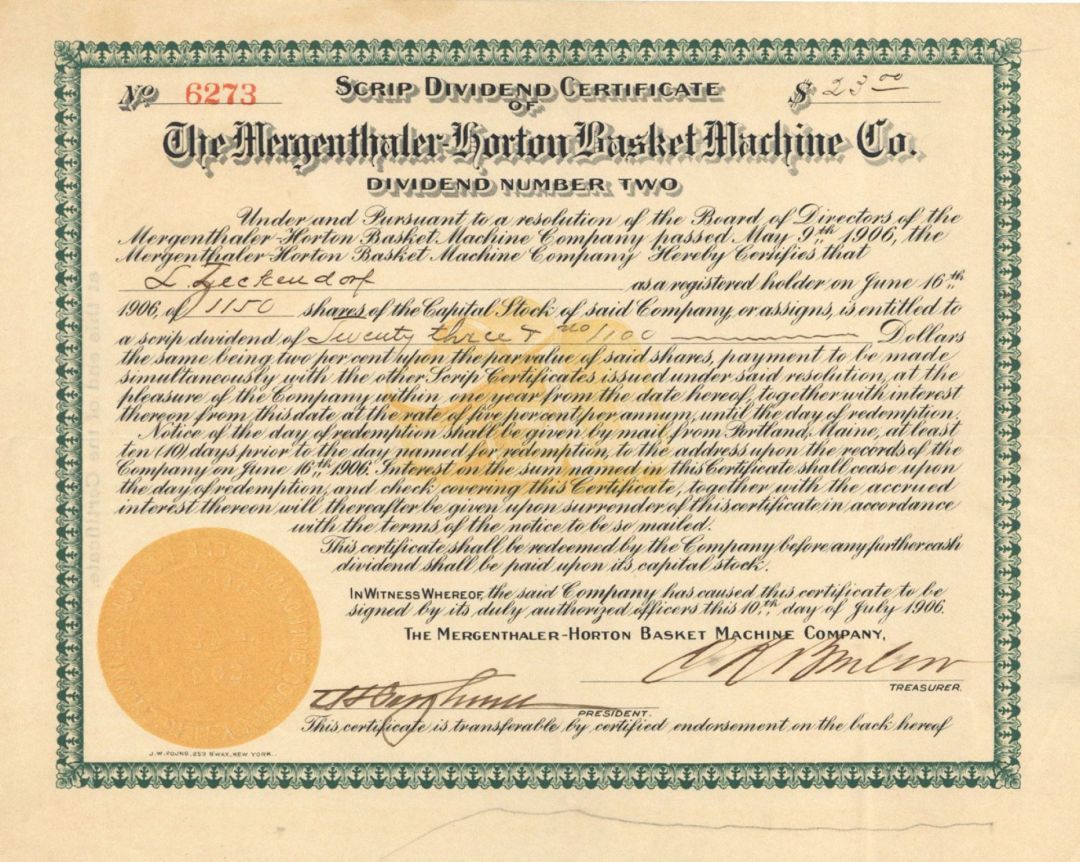 No 6273
SCRIP DIVIDEND CERTIFICATE
$ 23 00
OF
The Mergenthaler-Horton Basket Machine Co.
DIVIDEND NUMBER TWO
Under and Pursuant to a resolution of the Board of Directors of the
Mergenthaler-Horton Basket Machine Company passed May 9th 1906, the
Mergenthaler-Horton Basket Machine Company Hereby Certifies that
L. Zeckendorf as a registered holder on June 16th
1906, of 1150 shares of the Capital Stock of said Company, or assigns, is entitled to
a scrip dividend of Twenty three & no/100 Dollars
the same being two per cent upon the par value of said shares, payment to be made
simultaneously with the other Scrip Certificates issued under said resolution, at the
pleasure of the Company within one year from the date hereof, together with interest
thereon from this date at the rate of five per cent per annum, until the day of redemption.
Notice of the day of redemption shall be given by mail from Portland, Maine, at least
ten (10) days prior to the day named for redemption, to the address upon the records of the
Company on June 16th, 1906. Interest on the sum named in this Certificate shall cease upon
the day of redemption, and check covering this Certificate, together with the accrued
interest thereon will thereafter be given upon surrender of this certificate in accordance
with the terms of the notice to be so mailed.
This certificate shall be redeemed by the Company before any further cash
dividend shall be paid upon its capital stock.
IN WITNESS WHEREOF, the said Company has caused this certificate to be
signed by its duly authorized officers this 10th day of July 1906.
THE MERGENTHALER-HORTON BASKET MACHINE COMPANY,
TREASURER.
PRESIDENT.
This certificate is transferable by certified endorsement on the back hereof
J.W. YOUNG, 253 B'WAY, NEW YORK.